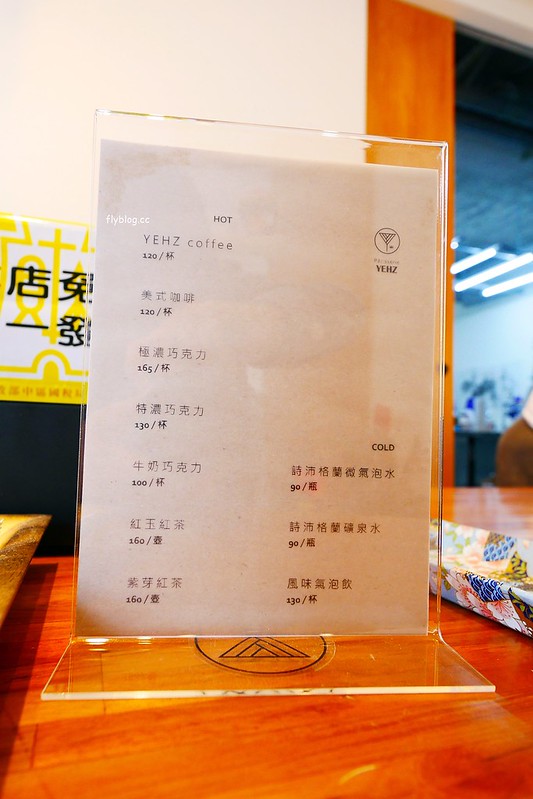 flyblog.cc
HOT
YEHZ coffee
120/杯
美式咖啡
120/杯
極濃巧克力
165/杯
特濃巧克力
130/杯
牛奶巧克力
100/杯
紅玉紅茶
160/壺
紫芽紅茶
160/壺
YEHZ
COLD
詩沛格蘭微氣泡水
90/瓶
詩沛格蘭礦泉水
90/瓶
風味氣泡飲
130/杯
店免
一發
部中區國稅局